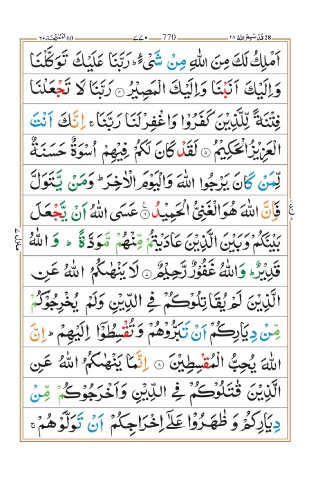 قد سمع الله ٢٨ 28 770 ٧٧٠ 60 الممتحنة ٦٠
اَمْلِكُ لَكَ مِنَ اللّٰهِ مِنْ شَىْءٍ ؕ رَبَّنَا عَلَيْكَ تَوَكَّلْنَا
وَاِلَيْكَ اَنَبْنَا وَاِلَيْكَ الْمَصِيْرُ ۝۴ رَبَّنَا لَا تَجْعَلْنَا
فِتْنَةً لِّلَّذِيْنَ كَفَرُوْا وَاغْفِرْ لَنَا رَبَّنَا ۚ اِنَّكَ اَنْتَ
الْعَزِيْزُ الْحَكِيْمُ ۝۵ لَقَدْ كَانَ لَكُمْ فِيْهِمْ اُسْوَةٌ حَسَنَةٌ
لِّمَنْ كَانَ يَرْجُوا اللّٰهَ وَالْيَوْمَ الْاٰخِرَ ؕ وَمَنْ يَّتَوَلَّ
فَاِنَّ اللّٰهَ هُوَ الْغَنِىُّ الْحَمِيْدُ ۝۶ عَسَى اللّٰهُ اَنْ يَّجْعَلَ
بَيْنَكُمْ وَبَيْنَ الَّذِيْنَ عَادَيْتُمْ مِّنْهُمْ مَّوَدَّةً ؕ وَاللّٰهُ
قَدِيْرٌ ؕ وَاللّٰهُ غَفُوْرٌ رَّحِيْمٌ ۝۷ لَا يَنْهٰىكُمُ اللّٰهُ عَنِ
الَّذِيْنَ لَمْ يُقَاتِلُوْكُمْ فِى الدِّيْنِ وَلَمْ يُخْرِجُوْكُمْ
مِّنْ دِيَارِكُمْ اَنْ تَبَرُّوْهُمْ وَتُقْسِطُوْۤا اِلَيْهِمْ ؕ اِنَّ
اللّٰهَ يُحِبُّ الْمُقْسِطِيْنَ ۝۸ اِنَّمَا يَنْهٰىكُمُ اللّٰهُ عَنِ
الَّذِيْنَ قٰتَلُوْكُمْ فِى الدِّيْنِ وَاَخْرَجُوْكُمْ مِّنْ
دِيَارِكُمْ وَظٰهَرُوْا عَلٰٓى اِخْرَاجِكُمْ اَنْ تَوَلَّوْهُمْ ۚ